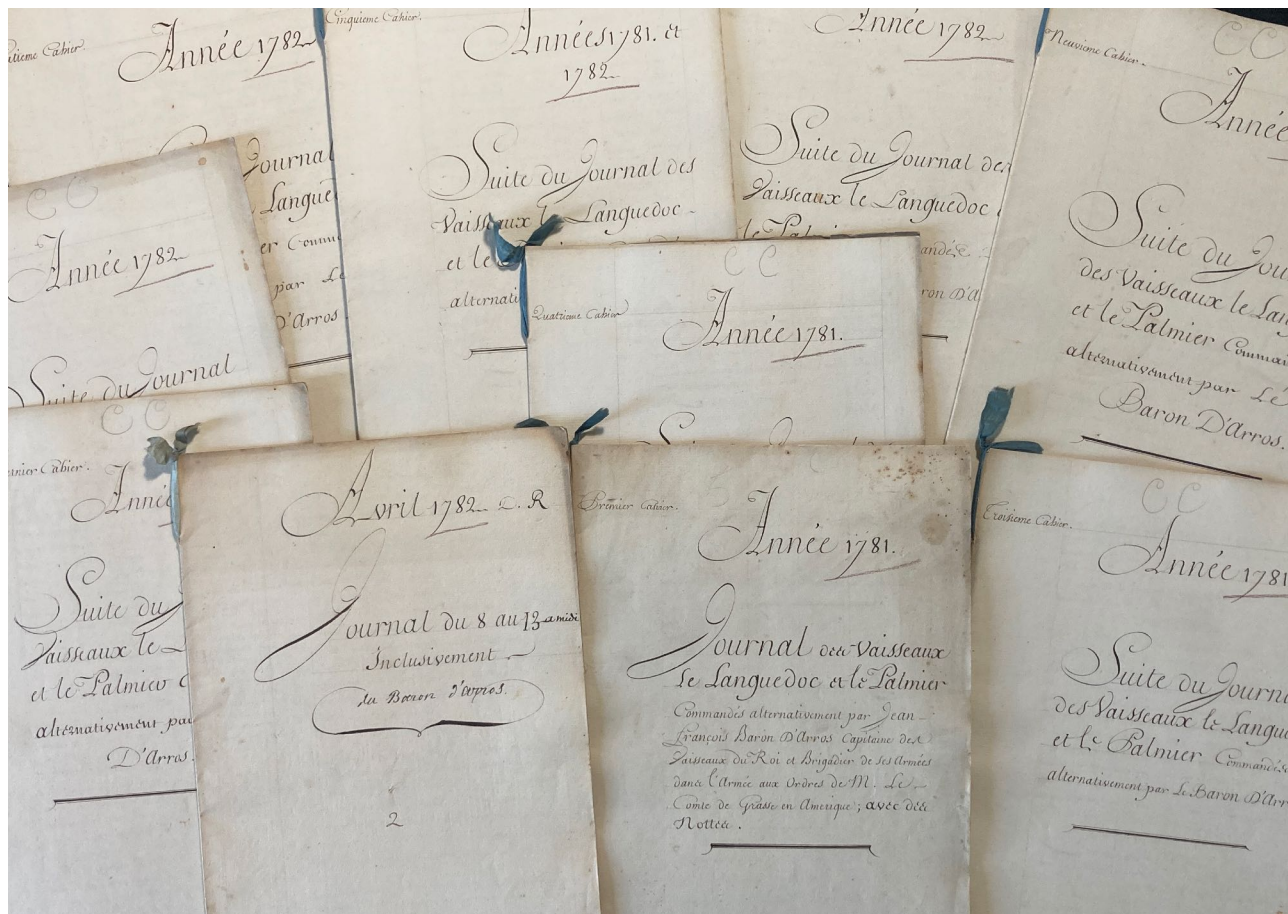 Cahier.
Année 1782
Journal
Langue
er Comm
par Le
D'Arros
Cinquieme Cahier.
Années 1781. et
1782
Suite du Journal des
Vaisseaux le Languedoc
et le
alternati
Année 1782
Suite du Journal des
Vaisseaux le Languedoc
le Pal
andés
ron D'A
Neuvieme Cahier.
CC
Année
Suite du Jou
des Vaisseaux le Lan
et le Palmier Comman
alternativement par Le
Baron D'Arros.
CC
Année 1782
Suite du Journal
CC
Quatrieme Cahier
Année 1781.
CC
Cahier.
Année
Suite du J
Vaisseaux le L
et le Palmier C
alternativement pa
D'Arros.
Avril 1782 C. R
Journal du 8 au 13 a midi
Inclusivement
du Baron d'arros.
2
Premier Cahier.
Année 1781.
Journal des Vaisseaux
le Languedoc et le Palmier
Commandés alternativement par Jean
François Baron D'Arros Capitaine des
Vaisseaux du Roi et Brigadier de ses Armées
dans l'Armée aux Ordres de M. Le
Comte de Grasse en Amerique; avec des
Nottes.
CC
Troisieme Cahier.
Année 1781
Suite du Journ
des Vaisseaux le Langue
et le Palmier Commandés
alternativement par Le Baron D'Arr